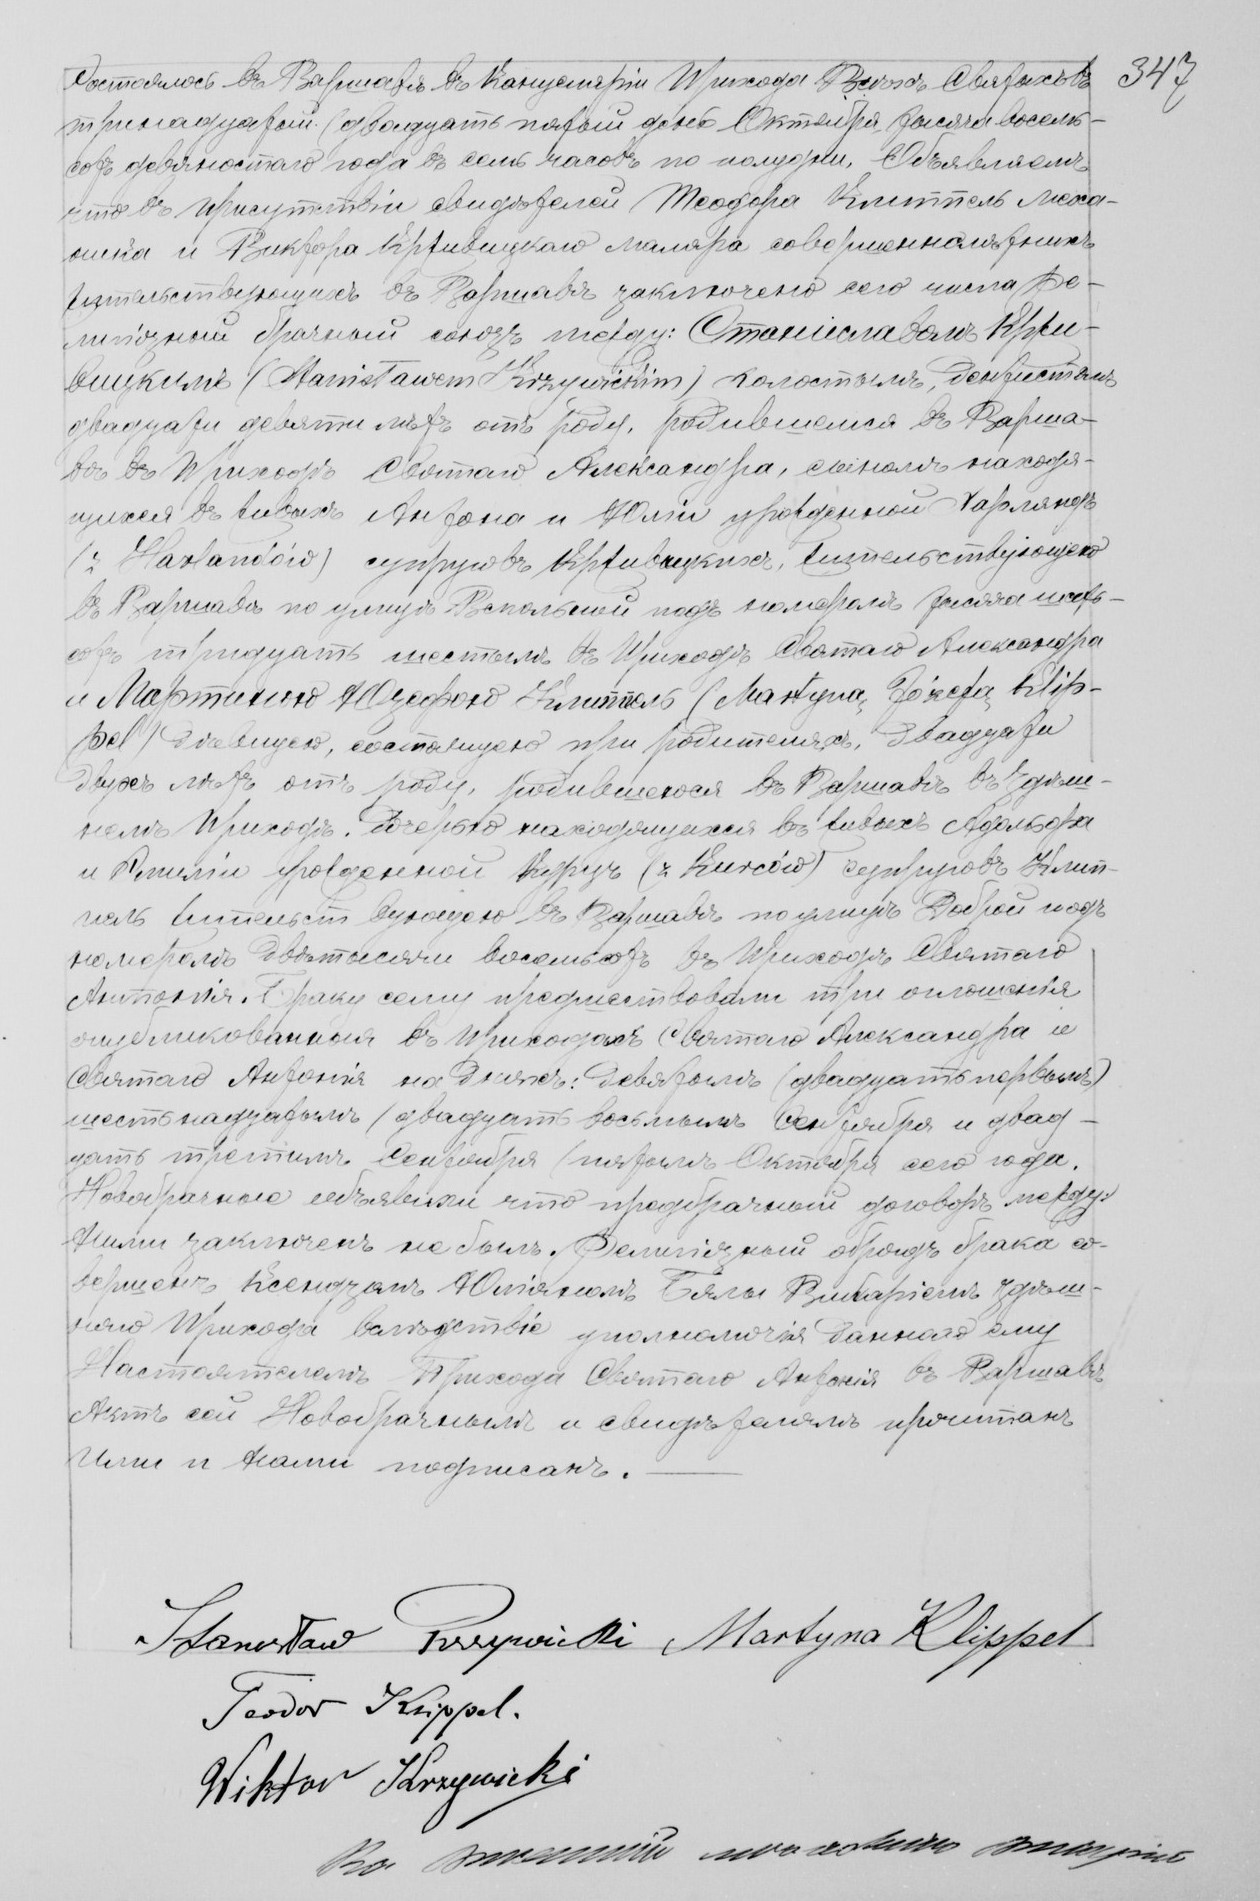 347
Состоялось въ Варшавѣ въ Канцеляріи Прихода Всѣхъ Святыхъ въ
тринадцатый (двадцать пятый день Октября тысяча восемь-
сотъ девяностаго года въ семь часовъ по полудни. Объявляемъ
что въ присутствіи свидѣтелей Теодора Клиппель меха-
ника и Виктора Крживицкаго маляра совершеннолѣтнихъ
жительствующихъ въ Варшавѣ заключено сего числа Ре-
лигіозный брачный союзъ между: Станиславомъ Кржи-
вицкимъ (Stanisławem Krzywickim) холостымъ, дентистомъ
двадцати девяти лѣтъ отъ роду, родившемся въ Варша-
вѣ въ Приходѣ Святаго Александра, сыномъ находя-
щихся въ живыхъ Антона и Юліи урожденной Харляндъ
(z Harlandów) супруговъ Крживицкихъ, жительствующего
въ Варшавѣ по улицѣ Вспольной подъ номеромъ тысяча шесть-
сотъ тридцать шестымъ въ Приходѣ Святаго Александра
и Мартиною Юзефою Клиппель (Martyną Józefą Klip-
pel) Дѣвицею, состоящею при родителяхъ, двадцати
двухъ лѣтъ отъ роду, родившеюся въ Варшавѣ въ здѣш-
немъ Приходѣ. Дочерью находящихся въ живыхъ Адольфа
и Эмиліи урожденной Курцъ (z Kurców) супруговъ Клип-
пель жительствующею въ Варшавѣ по улицѣ Доброй подъ
номеромъ двѣ тысячи восемьсотъ въ Приходѣ Святаго
Антонія. Браку сему предшествовали три оглошенія
опубликованныя въ Приходахъ Святаго Александра и
Святаго Антонія на дняхъ: девятымъ (двадцать первымъ)
шестьнадцатымъ (двадцать восьмымъ Сентября и двад-
цать третимъ Сентября (пятымъ Октября сего года.
Новобрачные объявили что предбрачный договоръ между
ними заключенъ не былъ. Религіозный обрядъ брака со-
вершенъ Ксендзомъ Юліаномъ Бялы Викаріемъ здѣш-
няго Прихода вслѣдствіе уполномочія даннаго ему
Настоятелемъ Прихода Святаго Антонія въ Варшавѣ
Актъ сей Новобрачнымъ и свидѣтелямъ прочитанъ
Ими и Нами подписанъ.
Stanisław Krzywicki Martyna Klippel
Teodor Klippel.
Wiktor Krzywicki